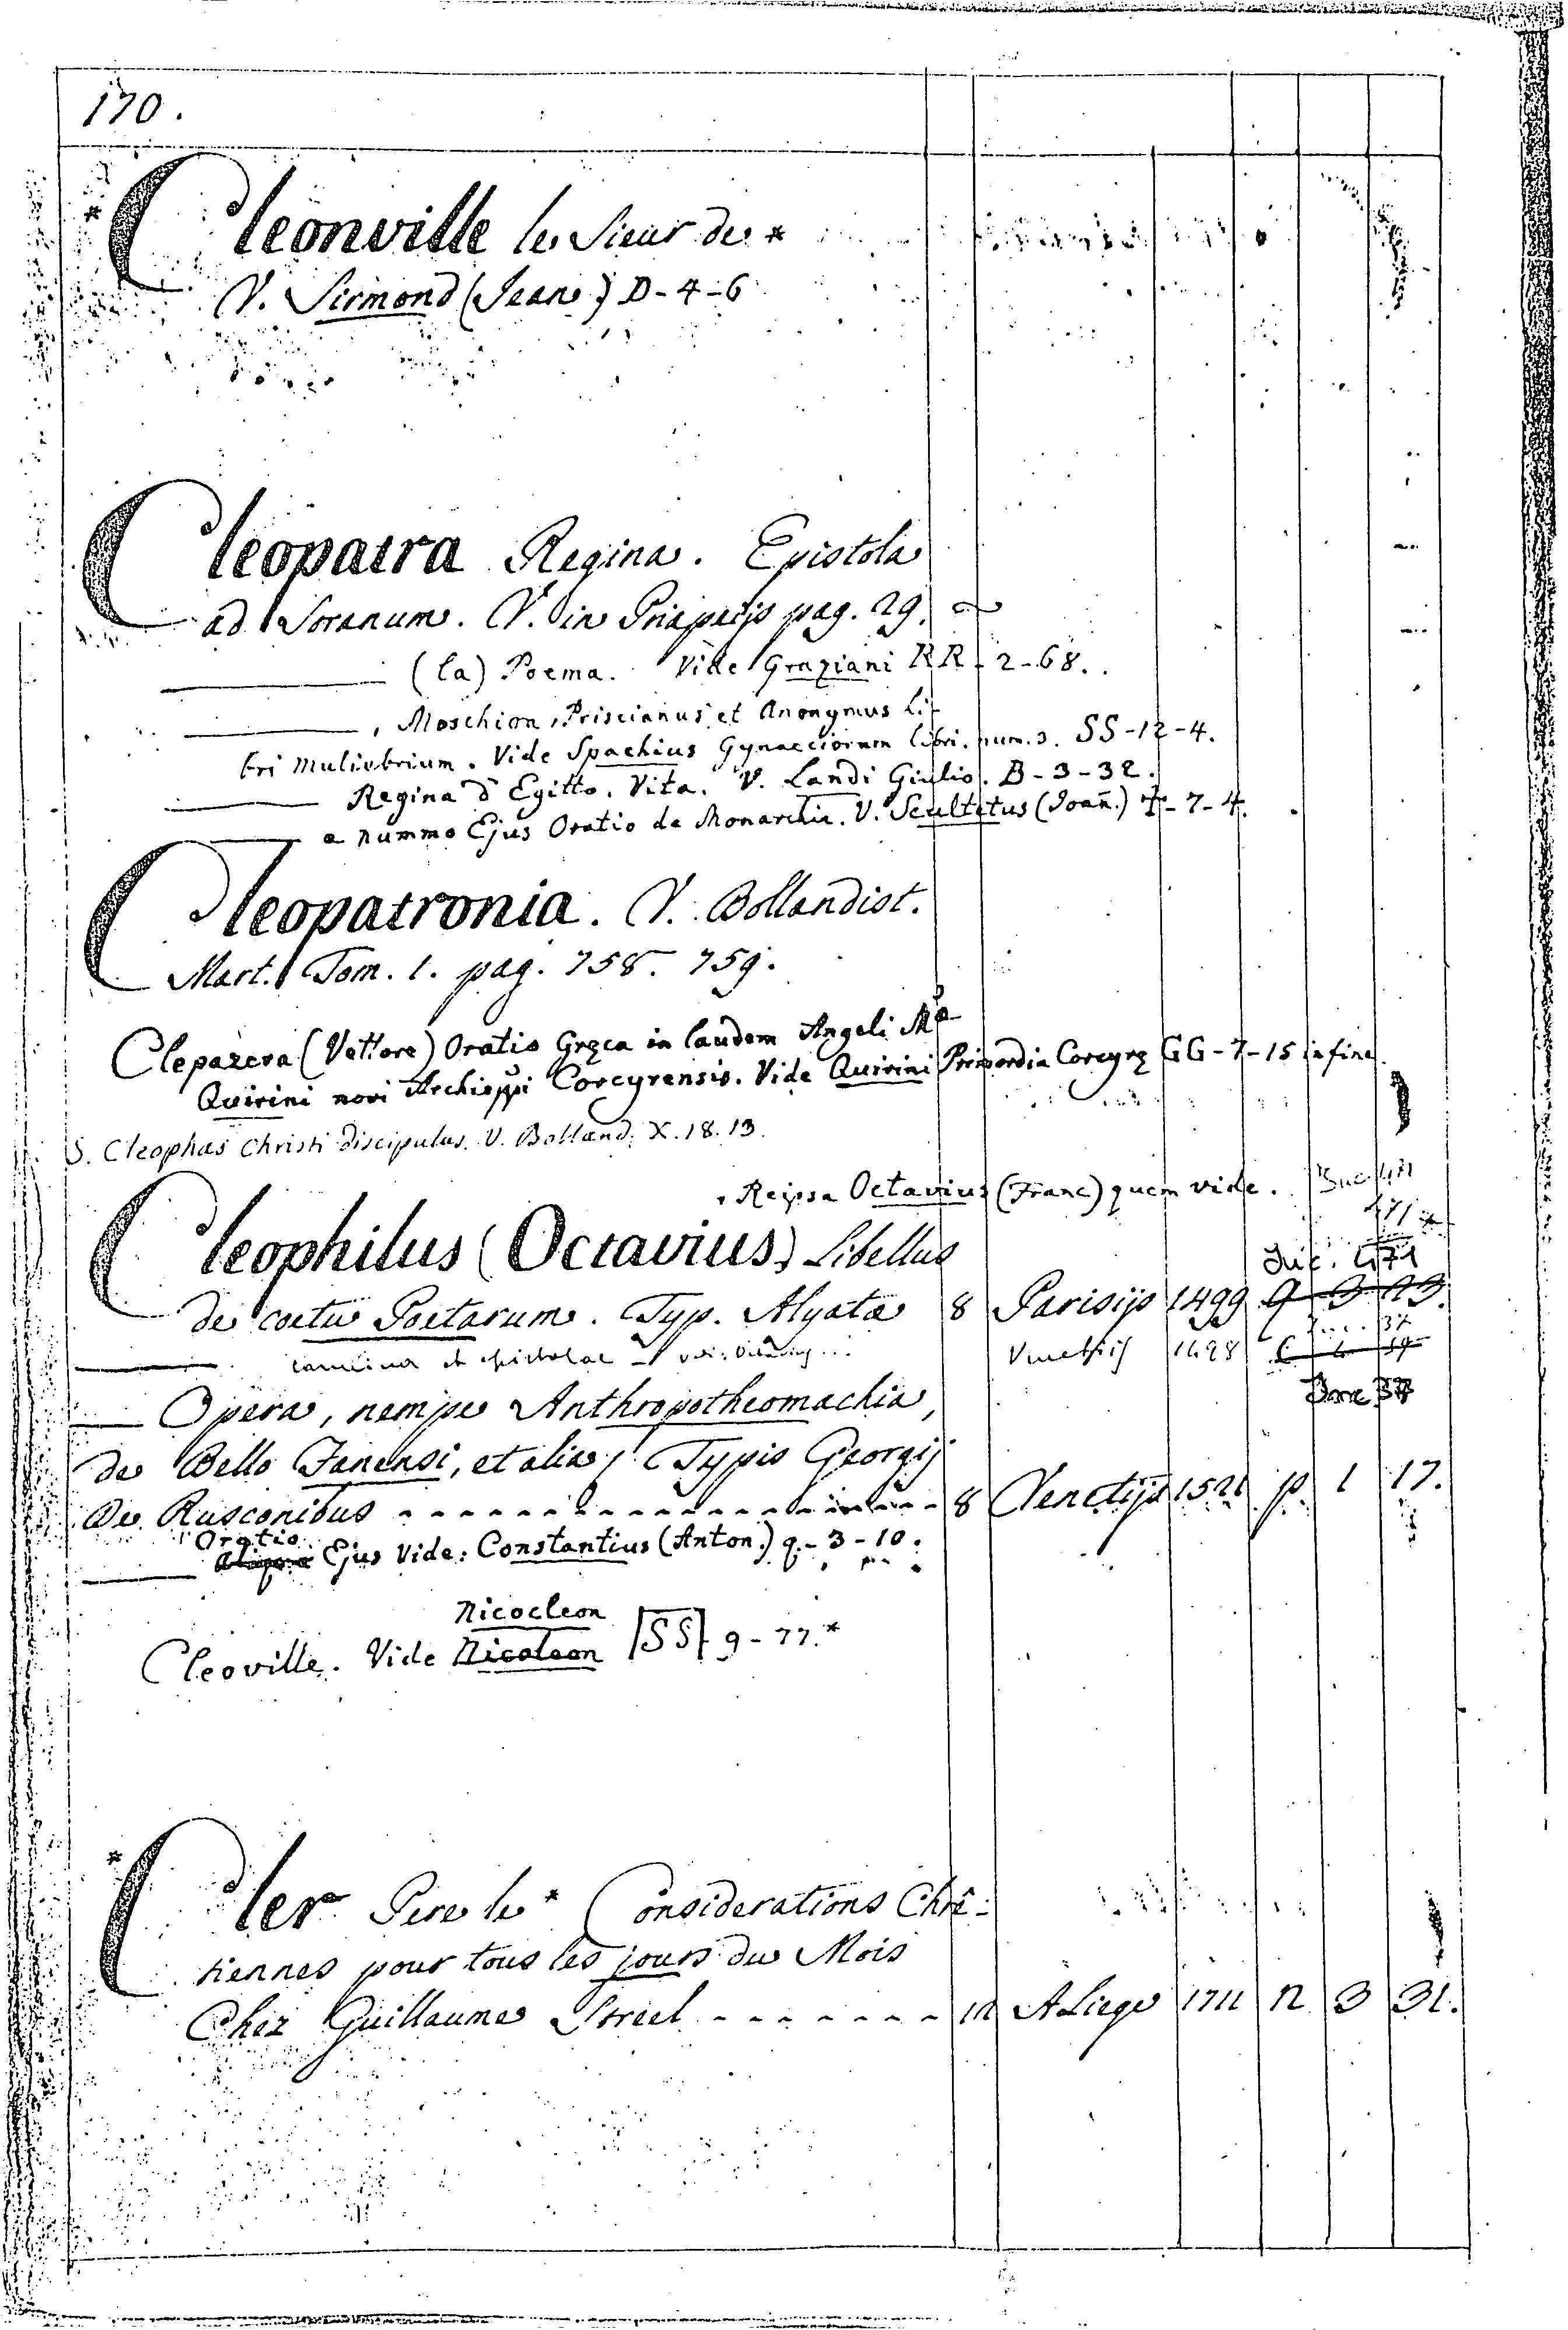 170.
* Cleonville le Sieur de *
V. Sirmond (Jean) D-4-6
Cleopatra Regina. Epistola
ad Soranum. V. in Priapeijs pag. 29.
——— (la) Poema. Vide Graziani RR-2-68.
———, Moschion, Priscianus et Anonymus Li-
bri muliebrium. Vide Spachius Gynaeciorum libri. num. 3. SS-12-4.
——— Regina d'Egitto. Vita. V. Landi Giulio. B-3-32.
——— a nummo Ejus Oratio de Monarchia. V. Scultetus (Joañ.) -7-4.
Cleopatronia. V. Bollandist.
Mart. Tom. 1. pag. 758. 759.
Clepazera (Vettore) Oratio Gręca in laudem Angeli Mª
Quirini novi Archieppi Corcyrensis. Vide Quirini Primordia Corcyrę GG-7-15 in fine.
S. Cleophas Christi discipulus. V. Bolland. X. 18. 13.
, Reipsa Octavius (Franc) quem vide. Inc 471
471
Cleophilus (Octavius) Libellus Inc. 471
de coetu Poetarum. Typ. Alyate 8 Parisijs 1499 q 3 23.
——— carmina et epistolae Venetijs 1498 Inc. 37
Inc 37
——— Opera, nempe Anthropotheomachia,
de Bello Fanensi, et alia; Typis Georgij
de Rusconibus - - - - - - 8 Venetijs 1521 p. 1 17.
Oratio
——— Ejus Vide: Constantius (Anton.) q-3-10.
Nicocleon
Cleoville. Vide Nicoleon SS-9-77.*
* Cler Pere le * Considerations Chrê-
tiennes pour tous les jours du Mois
Chez Guillaume Streel - - - - - - 12 A Liege 1711 n 3 31.